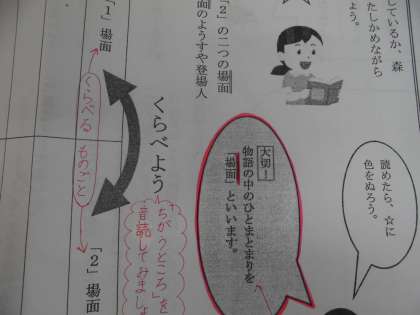 しているか、森
たしかめながら
よう。
読めたら、☆に
色をぬろう。
大切！
物語の中のひとまとまりを
「場面」といいます。
「2」の二つの場面
面のようすや登場人
くらべよう
「ちがうところ」を
音読してみましょ
「1」場面
くらべる ものごと
「2」場面